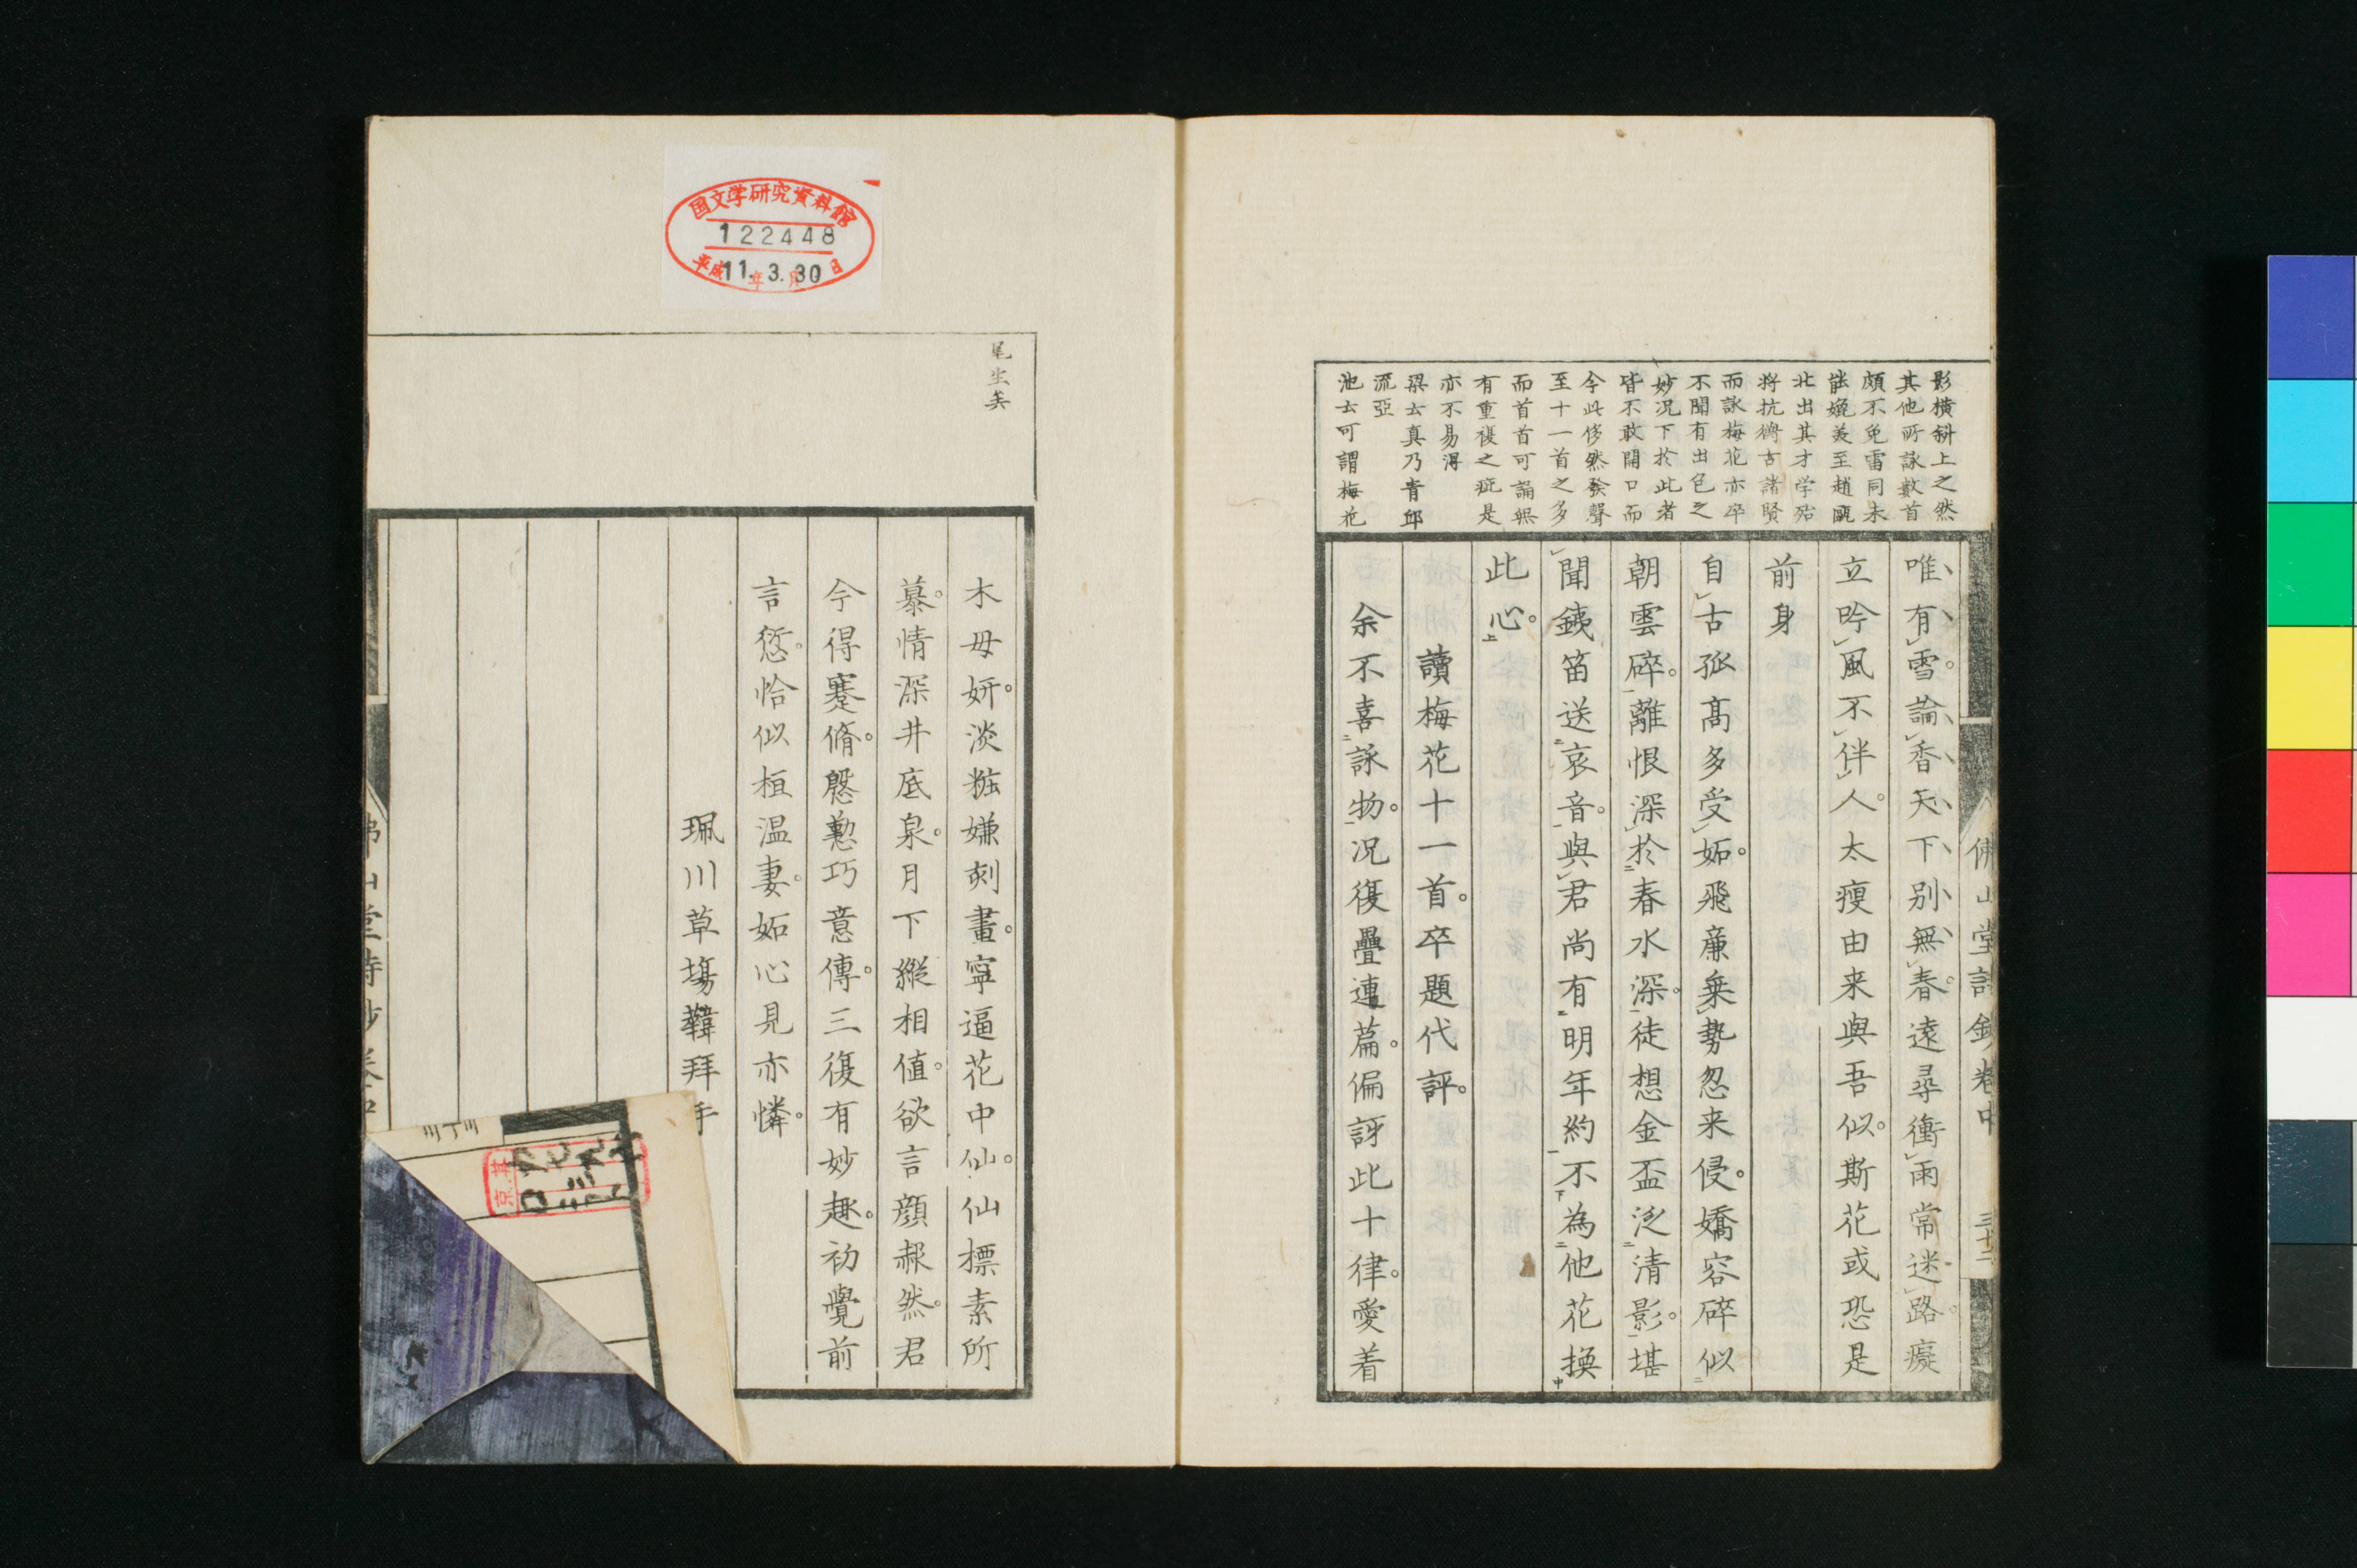 影橫斜上之然
其他所詠數首
頗不免雷同未
能媲美至趙甌
北出其才学殆
將抗衡古諸賢
而詠梅花亦卒
不聞有出色之
妙况下於此者
皆不敢開口而
今此侈然發聲
至十一首之多
而首首可誦無
有重複之疵是
亦不易得
梁云真乃青邱
流亞
池云可謂梅花
唯有雪論香天下別無春遠尋衝雨常迷路癡
立吟風不伴人太瘦由来與吾似斯花或恐是
前身
自古孤高多受妬飛廉乗勢忽来侵嬌容碎似
朝雲碎離恨深於春水深徒想金盃泛清影堪
聞銕笛送哀音與君尚有明年約不為他花換
此心
讀梅花十一首卒題代評
余不喜詠物况復疊連篇偏訝此十律愛着
佛山堂詩鈔卷中
三十二
尾生矣
木母妍淡粧嫌刻畫寧逼花中仙仙標素所
慕情深井底泉月下縱相値欲言顔赧然君
今得蹇脩慇懃巧意傳三復有妙趣初覺前
言愆恰似桓温妻妬心見亦憐
珮川草場韡拜手
国文学研究資料館
122448
平成11年3月30日